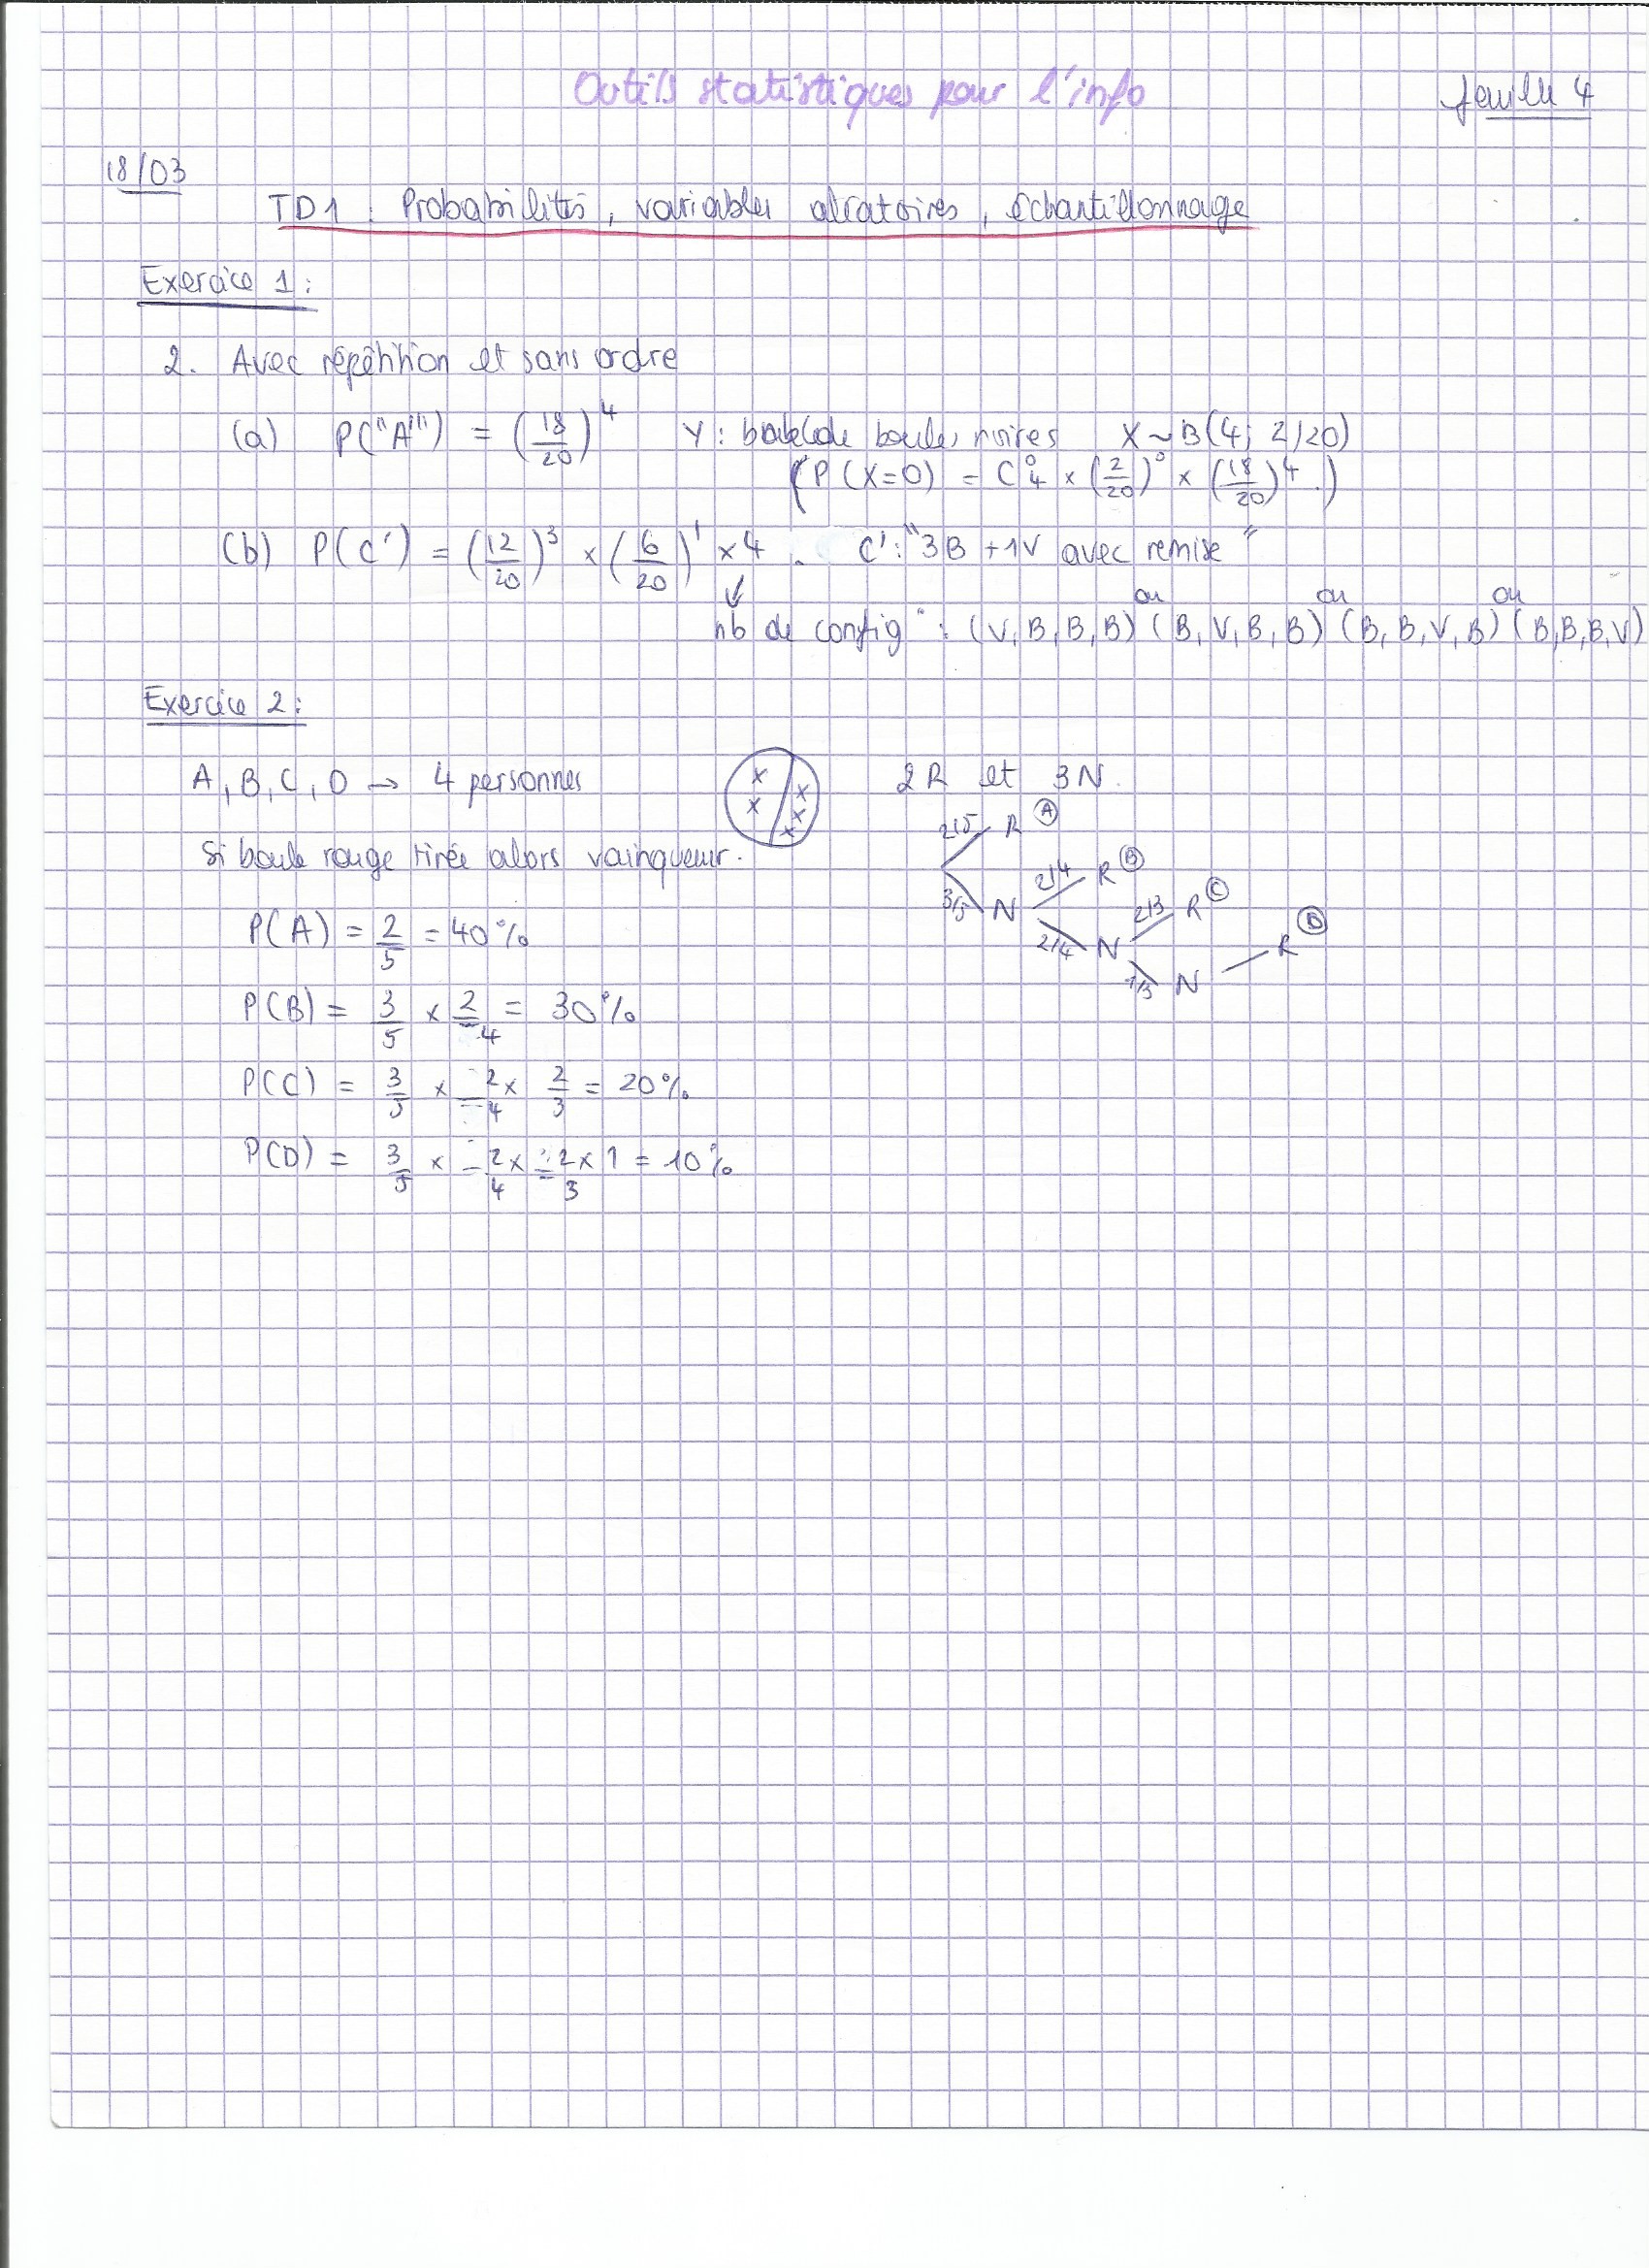 Outils statistiques pour l'info
feuille 4
18/03
TD1 : Probabilités, variables aléatoires, échantillonnage
Exercice 1 :
2. Avec répétition et sans ordre
(a) P("A'") = (18/20)^4 Y : de boules noires X ~ B(4; 2/20)
(P(X=0) = C⁰₄ × (2/20)^0 × (18/20)^4.)
(b) P(C') = (12/20)^3 × (6/20)^1 × 4. C' : "3B + 1V avec remise"
↓
nb de config° : (V, B, B, B) ou (B, V, B, B) ou (B, B, V, B) ou (B, B, B, V)
Exercice 2 :
A, B, C, D → 4 personnes
2R et 3N.
Si boule rouge tirée alors vainqueur.
2/5 R A
3/5 N 2/4 R B
2/4 N 2/3 R C
1/3 N R D
P(A) = 2/5 = 40%
P(B) = 3/5 × 2/4 = 30%
P(C) = 3/5 × 2/4 × 2/3 = 20%
P(D) = 3/5 × 2/4 × 2/3 × 1 = 10%